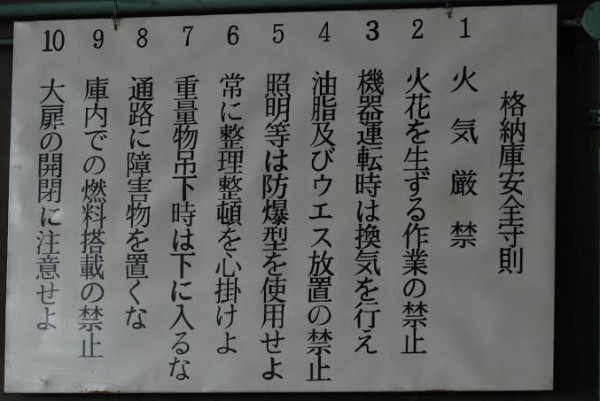 格納庫安全守則
1 火気厳禁
2 火花を生ずる作業の禁止
3 機器運転時は換気を行え
4 油脂及びウエス放置の禁止
5 照明等は防爆型を使用せよ
6 常に整理整頓を心掛けよ
7 重量物吊下時は下に入るな
8 通路に障害物を置くな
9 庫内での燃料搭載の禁止
10 大扉の開閉に注意せよ